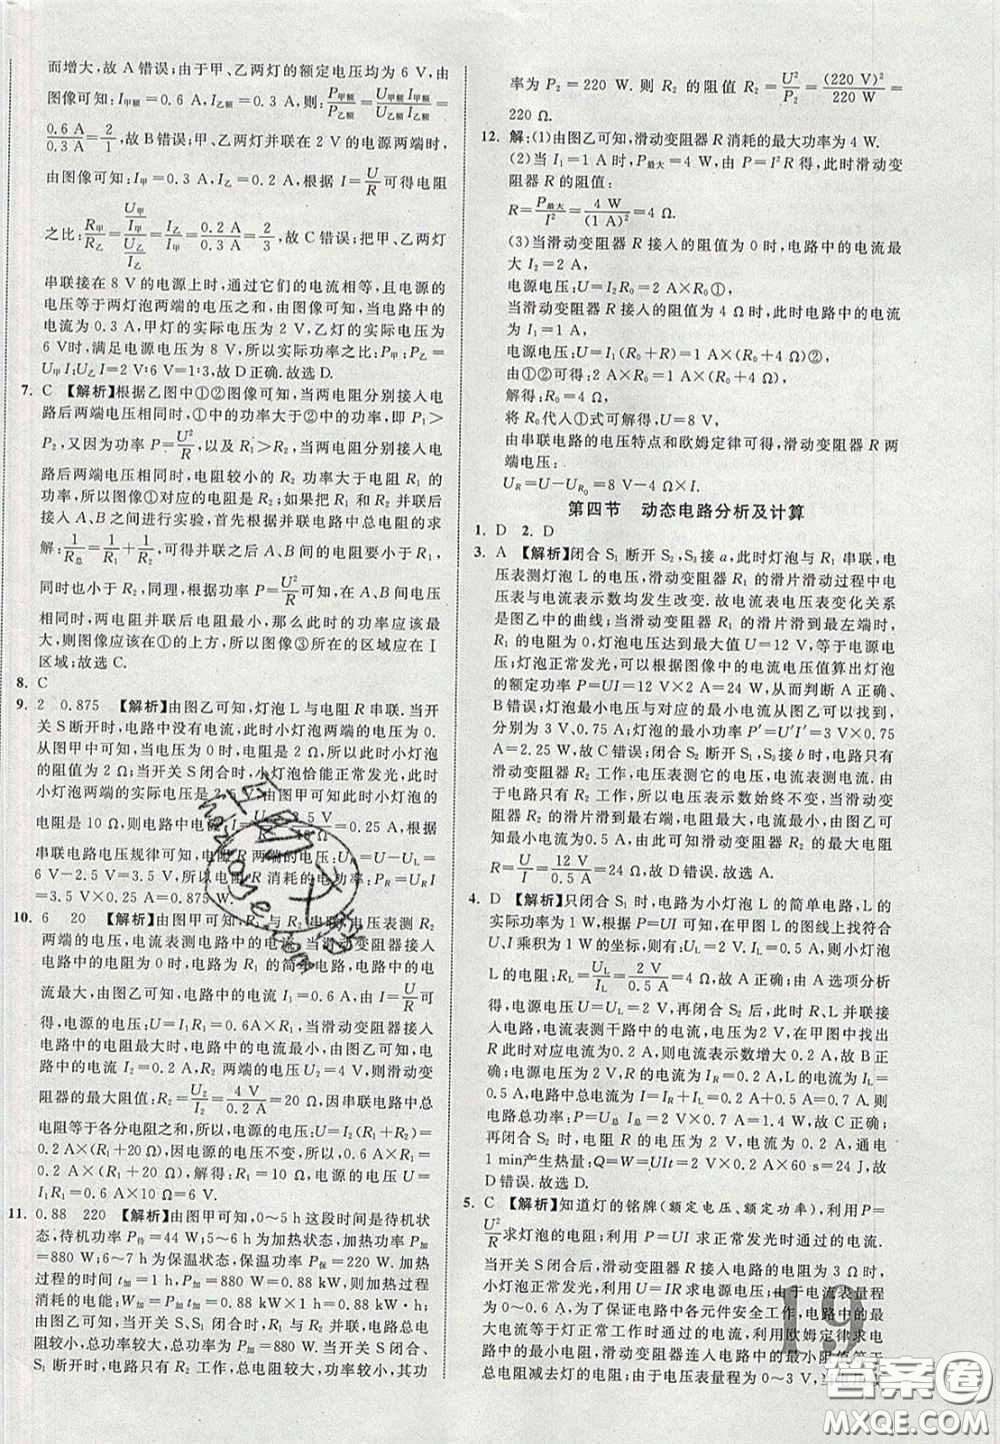 而增大,故 A 错误;由于甲、乙两灯的额定电压均为 6 V,由
图像可知:I甲额=0.6 A,I乙额=0.3 A,则:P甲额/P乙额=U甲额I甲额/U乙额I乙额=
0.6 A/0.3 A=2/1,故 B 错误;甲、乙两灯并联在 2 V 的电源两端时,
由图像可知:I甲=0.3 A,I乙=0.2 A,根据 I=U/R可得电阻
之比:R甲/R乙=(U甲/I甲)/(U乙/I乙)=I乙/I甲=0.2 A/0.3 A=2/3,故 C 错误;把甲、乙两灯
串联接在 8 V 的电源上时,通过它们的电流相等,且电源的
电压等于两灯泡两端的电压之和,由图像可知,当电路中的
电流为 0.3 A,甲灯的实际电压为 2 V,乙灯的实际电压为
6 V时,满足电源电压为 8 V,所以实际功率之比:P甲:P乙=
U甲I:U乙I=2 V:6 V=1:3,故 D 正确.故选 D.
7. C 【解析】根据乙图中①②图像可知,当两电阻分别接入电
路后两端电压相同时,①中的功率大于②中的功率,即 P1>
P2,又因为功率 P=U²/R,且知 R1>R2,当两电阻分别接入电
路后两端电压相同时,电阻较小的 R2 功率大于电阻 R1 的
功率,所以图像①对应的电阻是 R2;如果把 R1 和 R2 并联后
接入电路进行实验,首先根据并联电路中总电阻的求
解:1/R总=1/R1+1/R2,因此 A、B 之间的电阻要小于电阻 R1,
同时也小于电阻 R2,同理,根据 P=U²/R的关系,由于在 A、B
两端接入 R1 和 R2 并联后电阻最小,那么此时的功率应最
大,则图像应该在①的上方,所以图像③所在的区域应在Ⅰ
区域;故选 C.
8. C
9. 2 0.875 【解析】由图乙可知,灯泡 L 与电阻 R 串联.当开
关 S断开时,电路中没有电流,此时小灯泡两端的电压为 0.
从图甲中可知,当小灯泡两端的电压为 0 时,此时小灯泡
的阻值为 2 Ω;当开关 S闭合时,小灯泡恰能正常发光,此时
小灯泡两端的实际电压为 2.5 V,从图甲可知,此时小灯泡
的电阻是 10 Ω,则电路中电流 I=U/R=2.5 V/10 Ω=0.25 A,根据
串联电路电压规律可知,电阻 R 两端的电压=U-UL=
6 V-2.5 V=3.5 V,所以电阻 R 消耗的功率=PR=URI
=3.5 V×0.25 A=0.875 W.
10. 6 20 【解析】由图甲可知,R1 与 R2 串联,电压表测 R2
两端的电压,电流表测电路中的电流,当滑动变阻器接入
电路中的电阻为 0 时,电路为 R1 的简单电路,电路中的电
流最大,由图乙可知,电路中的电流 I1=0.6 A,由 I=U/R可
知,电源的电压:U=I1R1=0.6A×R1,当滑动变阻器接入
电路中的电阻最大时,电路中的电流最小,由图乙可知,电
路中的电流 I2=0.2 A,R2 两端的电压 U2=4 V,则滑动变阻
器的最大阻值:R2=U2/I2=4 V/0.2 A=20 Ω,因串联电路中总
电阻等于各分电阻之和,所以,电源的电压:U=I2(R1+R2)=
0.2 A×(R1+20 Ω),因电源的电压不变,所以,0.6 A×R1=
0.2 A×(R1+20 Ω),解得:R1=10 Ω,电源的电压 U=
I1R1=0.6 A×10 Ω=6 V.
11. 0.88 220 【解析】由图甲可知,0~5 h 这段时间是待机状
态,待机功率 P待=44 W;5~6 h 为加热状态,加热功率 P加
=880 W;6~7 h 为保温状态,保温功率 P保=220 W.加热
过程的时间 t加=1 h,P加=880 W=0.88 kW,则加热过程
消耗的电能:W加=P加t加=0.88 kW×1 h=0.88 kW·h;
由图乙可知,当开关 S 闭合、S1 断开时,电路总电
阻较小,总功率较大,功率 P加=880 W,当开关 S 闭合、
S1 断开时,电路只有 R2 工作,总电阻较大,功率较小,其功
率为 P2=220 W. 则 R2 的阻值 R2=U²/P2=(220 V)²/220 W=
220 Ω.
12. 解:(1)由图乙可知,滑动变阻器 R消耗的最大功率为 4 W.
(2)当 I1=1 A 时,P最大=4 W,由 P=I²R 得,此时滑动变
阻器 R 的阻值:
R=P最大/I²=4 W/(1 A)²=4 Ω.
(3)当滑动变阻器 R 接入的阻值为 0 时,电路中的电流最
大 I2=2 A,
电源电压:U=I2R0=2 A×R0①,
当滑动变阻器 R 接入的阻值为 4 Ω时,此时电路中的电流
为 I1=1 A,
电源电压:U=I1(R0+R)=1 A×(R0+4 Ω)②,
解得:R0=4 Ω,
将 R0代入①式可解得,U=8 V,
由串联电路的电压特点和欧姆定律可得,滑动变阻器 R 两
端电压:
UR=U-UR0=8 V-4 Ω×I.
第四节 动态电路分析及计算
1. D 2. D
3. A 【解析】闭合 S1 断开 S2,S3接 a,此时灯泡与 R1 串联,电
压表测灯泡 L 的电压,滑动变阻器 R1 的滑片滑动过程中电
压表与电流表示数均发生改变.故电流表电压表变化关系
是图乙中的曲线;当滑动变阻器 R1 的滑片滑到最左端时,
R1 的电阻为 0,灯泡电压达到最大值 U=12 V,等于电源电
压;灯泡正常发光,可以根据图像中的电流电压值算出灯泡
的额定功率 P=UI=12 V×2 A=24 W,从而判断 A 正确、
B 错误;灯泡的最小电压与对应的最小电流从图乙可以看出,
分别为 3 V、0.75 A;灯泡的最小功率 P′=U′I′=3 V×0.75
A=2.25 W,故 C 错误;闭合 S2 断开 S1,S3接 b 时,电路只有
滑动变阻器 R1 工作,电压表测它的电压,电流表测电流.由
于电路只有 R1 工作,电压表示数始终不变,当滑动变阻
器 R1 的滑片滑到最右端,电路电流最小,由图乙可
知最小电流为 0.5 A,此时电阻为滑动变阻器的最大值
R=U/I=12 V/0.5 A=24 Ω,故 D 错误.故选 A.
4. D 【解析】只闭合 S1 时,电路为小灯泡 L 的简单电路,L 的
实际功率为 1 W,根据 P=UI 可知,在甲图 L 的图线上找出
U、I 乘积为 1W 的坐标,则有:U=2 V,I=0.5 A,则小灯泡
L的电阻:RL=UL/IL=2 V/0.5 A=4 Ω;故 A 正确;由 A 选项分析
得,电源电压 U=UL=2 V;再闭合 S2 后,电阻 R、L 并联接
入电路,电流表测干路中的电流,U=2 V,在甲图中找出
R 此时对应电流为0.2 A,电流表示数增大 0.2 A,故 B 正
确;由 B 可知,通过 R 的电流为 IR=0.2 A,L 的电流为 IL=
0.5 A,电路中总电流为 I总=IR+IL=0.2 A+0.5 A=0.7 A,则
电路总功率:P=U总 I总=2 V×0.7 A=1.4 W,故 C 正确;
再闭合 S2 时,电阻 R 的电压为 2 V、电流为 0.2 A,通电
1 min产生热量:Q=W=UIt=2 V×0.2 A×60 s=24 J,故
D 错误.故选 D.
5. C 【解析】知道灯的铭牌(额定电压、额定功率),利用 P=
U²/R 求灯泡的电阻,利用 P=UI 求灯正常发光时通过的电流.
当开关闭合后,滑动变阻器 R 接入电路的电阻为 3 Ω 时,
小灯泡正常发光,利用 U=IR 求电源电压;由于电流表量程
为 0~0.6 A,为了保证电路中各元件安全工作,电路中的最
大电流等于灯正常工作时通过的电流,利用欧姆定律求此
时电路的电阻,滑动变阻器连入电路中的最小阻值等于
总电阻减去灯的电阻;由于电压表量程为 0~3 V,
19
答案圈
MXQE.COM